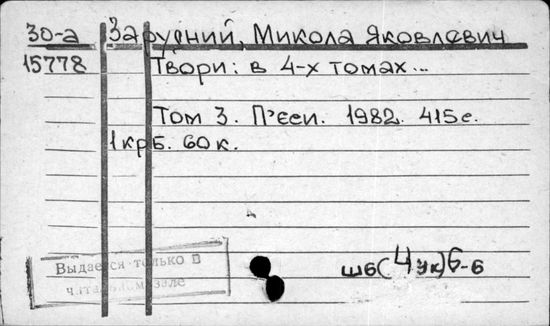 30-а Зарудний, Микола Яковлевич
15778 Твори: в 4-х томах...
Том 3. П'єси. 1982. 415с.
1крб. 60к.
Выдается только в
читальном зале
шб(4Ук)6-6